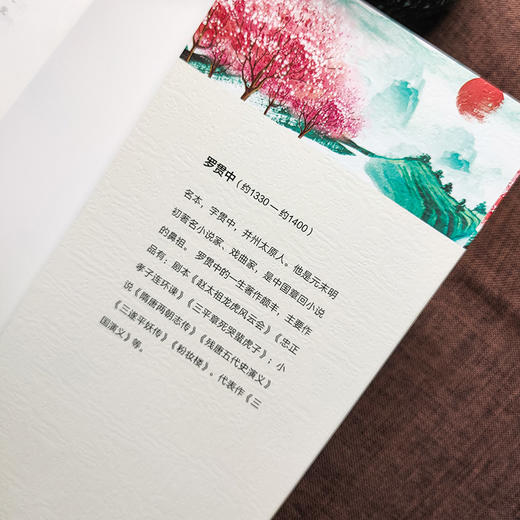 罗贯中（约1330—约1400）
名本，字贯中，并州太原人。他是元末明
初著名小说家、戏曲家，是中国章回小说
的鼻祖。罗贯中的一生著作颇丰，主要作
品有：剧本《赵太祖龙虎风云会》《忠正
孝子连环谏》《三平章死哭蜚虎子》；小
说《隋唐两朝志传》《残唐五代史演义》
《三遂平妖传》《粉妆楼》。代表作《三
国演义》等。